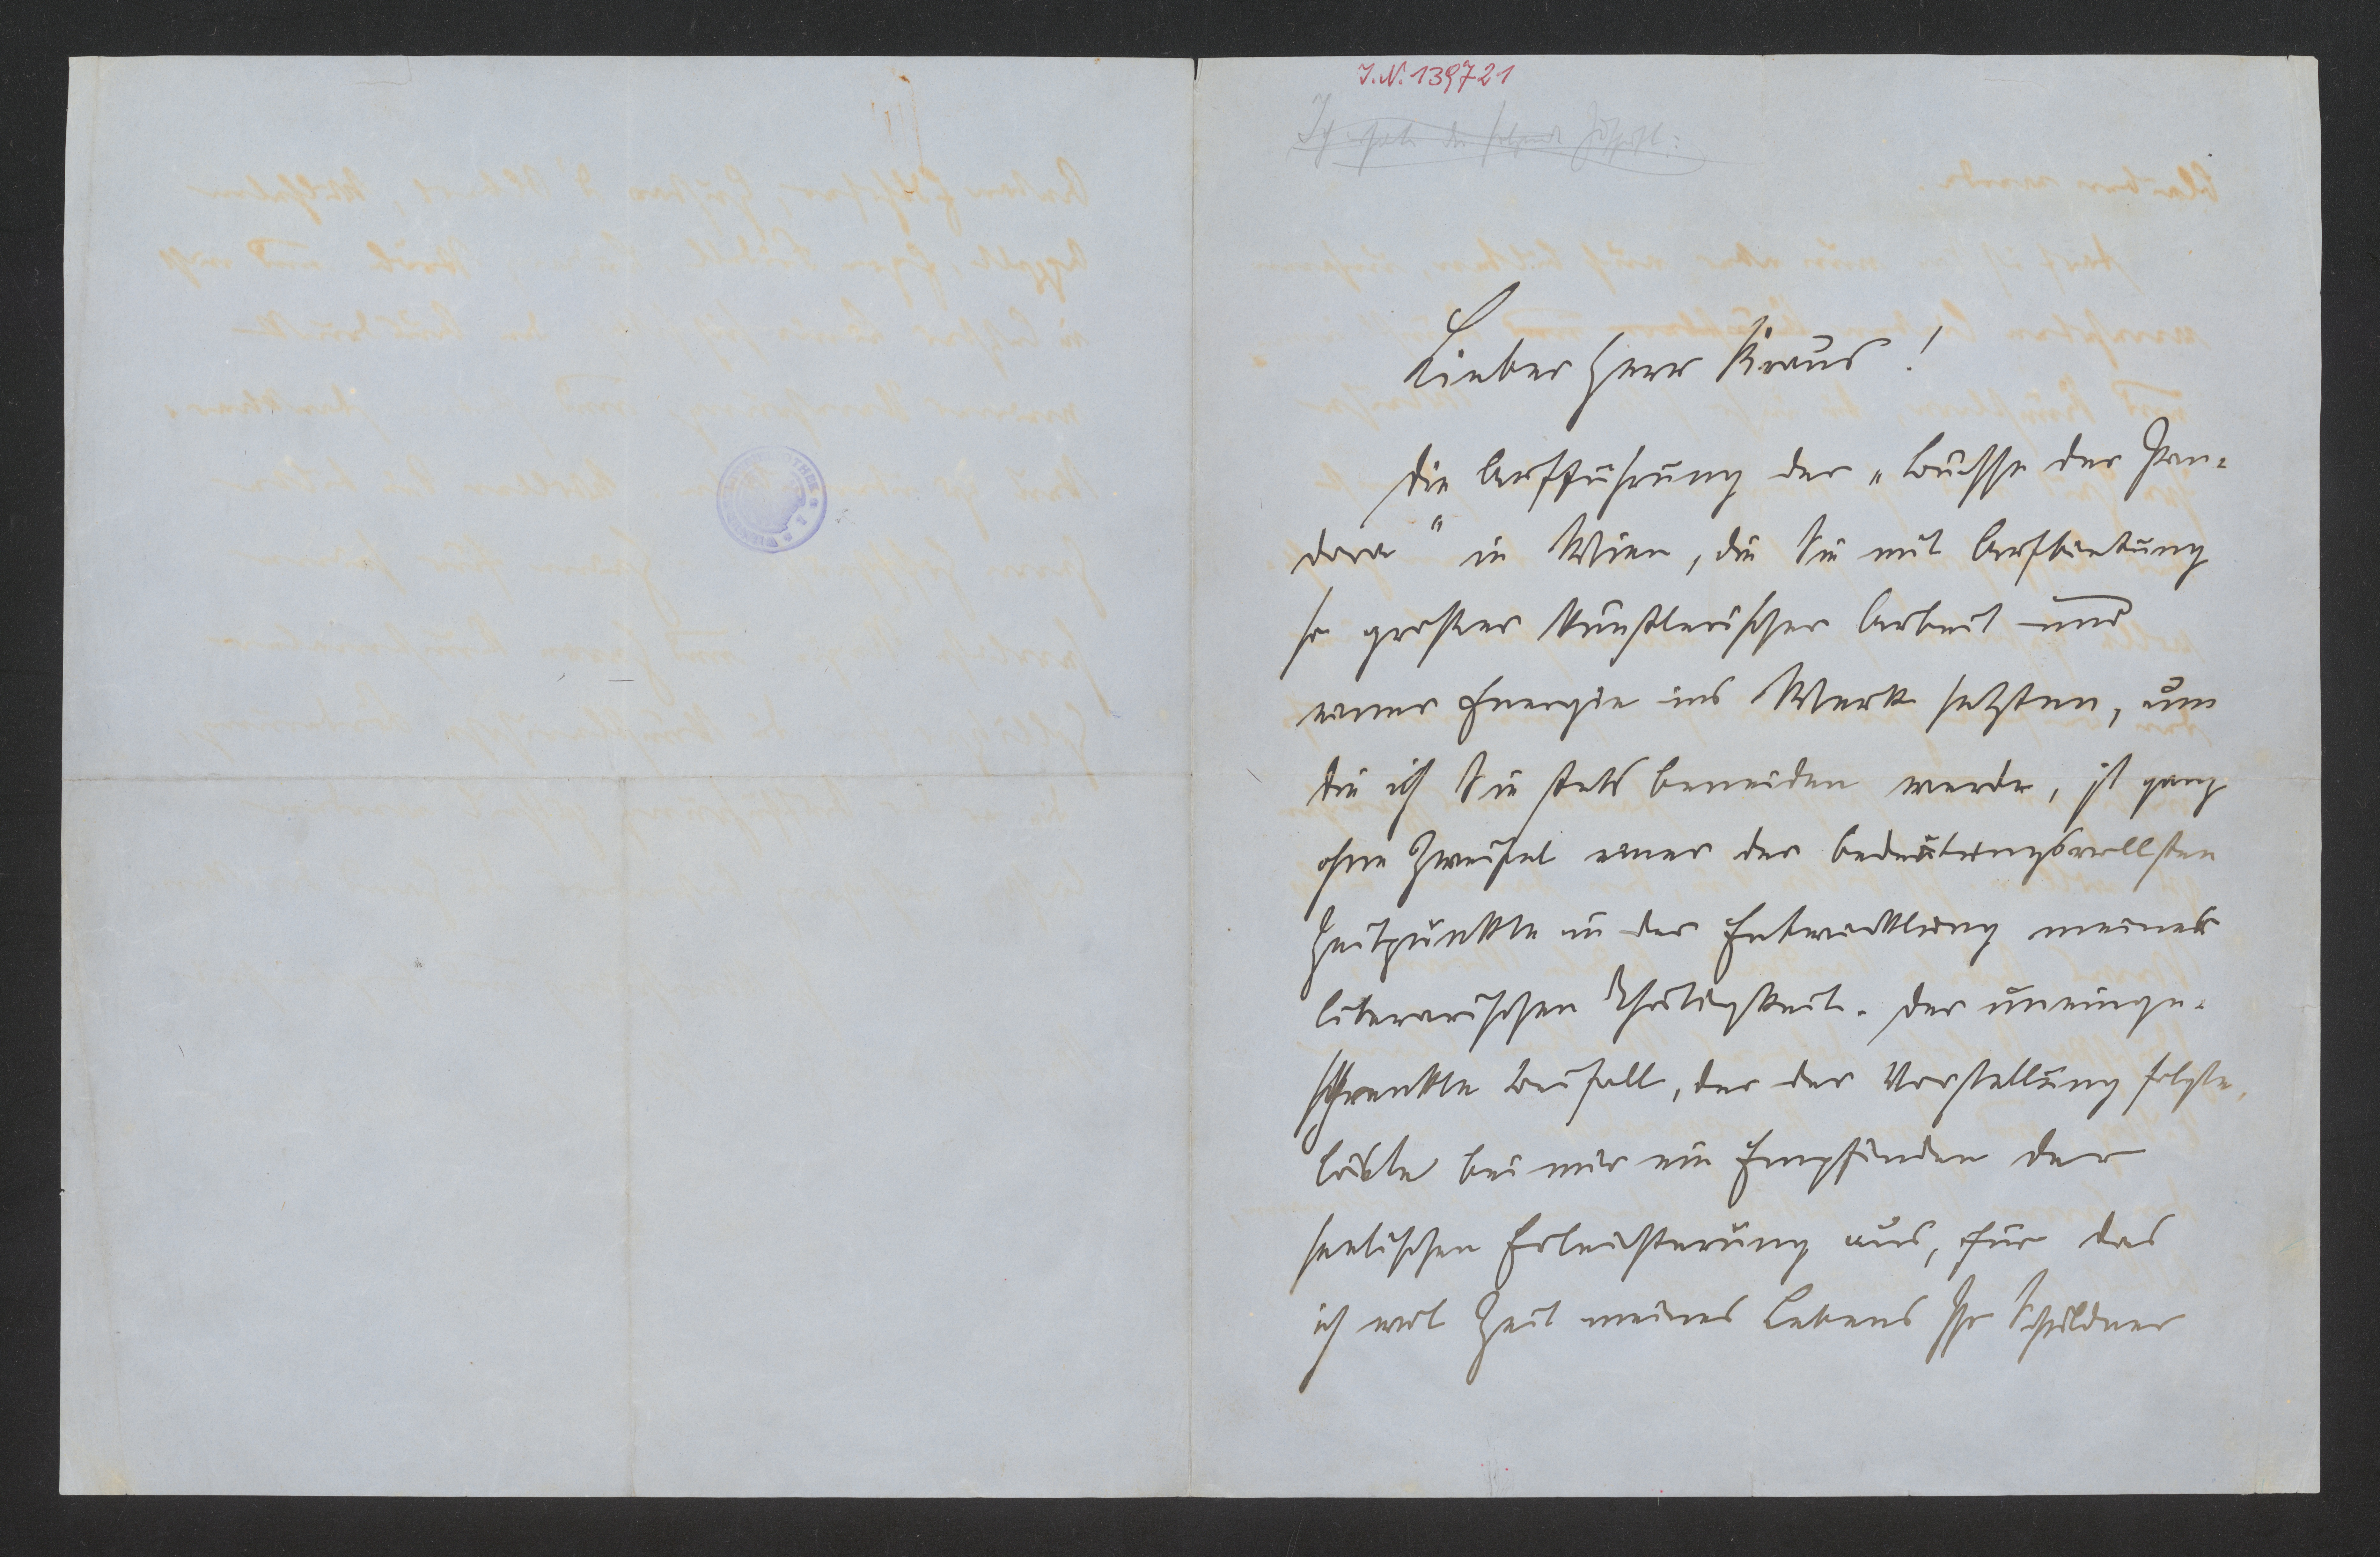 J.N. 139721
Ich erhalte die folgende Zuschrift:
Lieber Herr Kraus!
die Aufführung der „Büchse der Pan-
dora" in Wien, die Sie mit Aufbietung
so großer künstlerischer Arbeit und
einer Energie ins Werk setzten, um
die ich Sie stets beneiden werde, ist ganz
ohne Zweifel einer der bedeutungsvollsten
Zeitpunkte in der Entwicklung meiner
literarischen Thätigkeit. Der uneinge-
schränkte Beifall, der der Vorstellung folgte,
löste bei mir ein Empfinden der
seelischen Erleichterung aus, für das
ich mit Zeit meines Lebens Ihr Schuldner